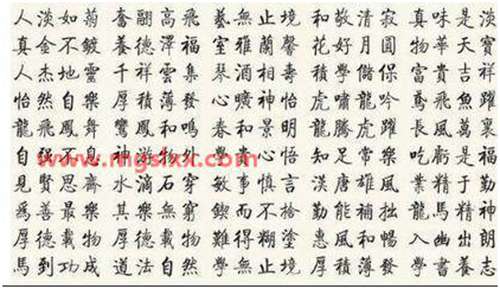 人淡如菊 奮翮高飛 藝無止境 和敬清寂 真味是淡
真金不鍍 養德澤福 室雅蘭馨 花好月圓 物華天寶
人杰地靈 千祥雲集 琴酒相壽 積學儲保 富貴吉祥
怡然自樂 厚積薄發 心曠神怡 虎嘯龍吟 鳶飛魚躍
龍飛鳳舞 鸞鳳和鳴 春和景明 龍騰虎躍 長風萬裏
自强不息 神游物外 貴心悟 知足常樂 吃虧是福
www.mgslxx.com
見賢思齋 水滴石穿 事慎言 漢唐雄風 業精于勤
爲善最樂 其樂無窮 鍥而不捨 勤能補拙 龍馬精神
厚德載物 厚德載物 難得糊塗 惠風和暢 入幽出朗
馬到功成 道法自然 學無止境 厚積薄發 學書養志